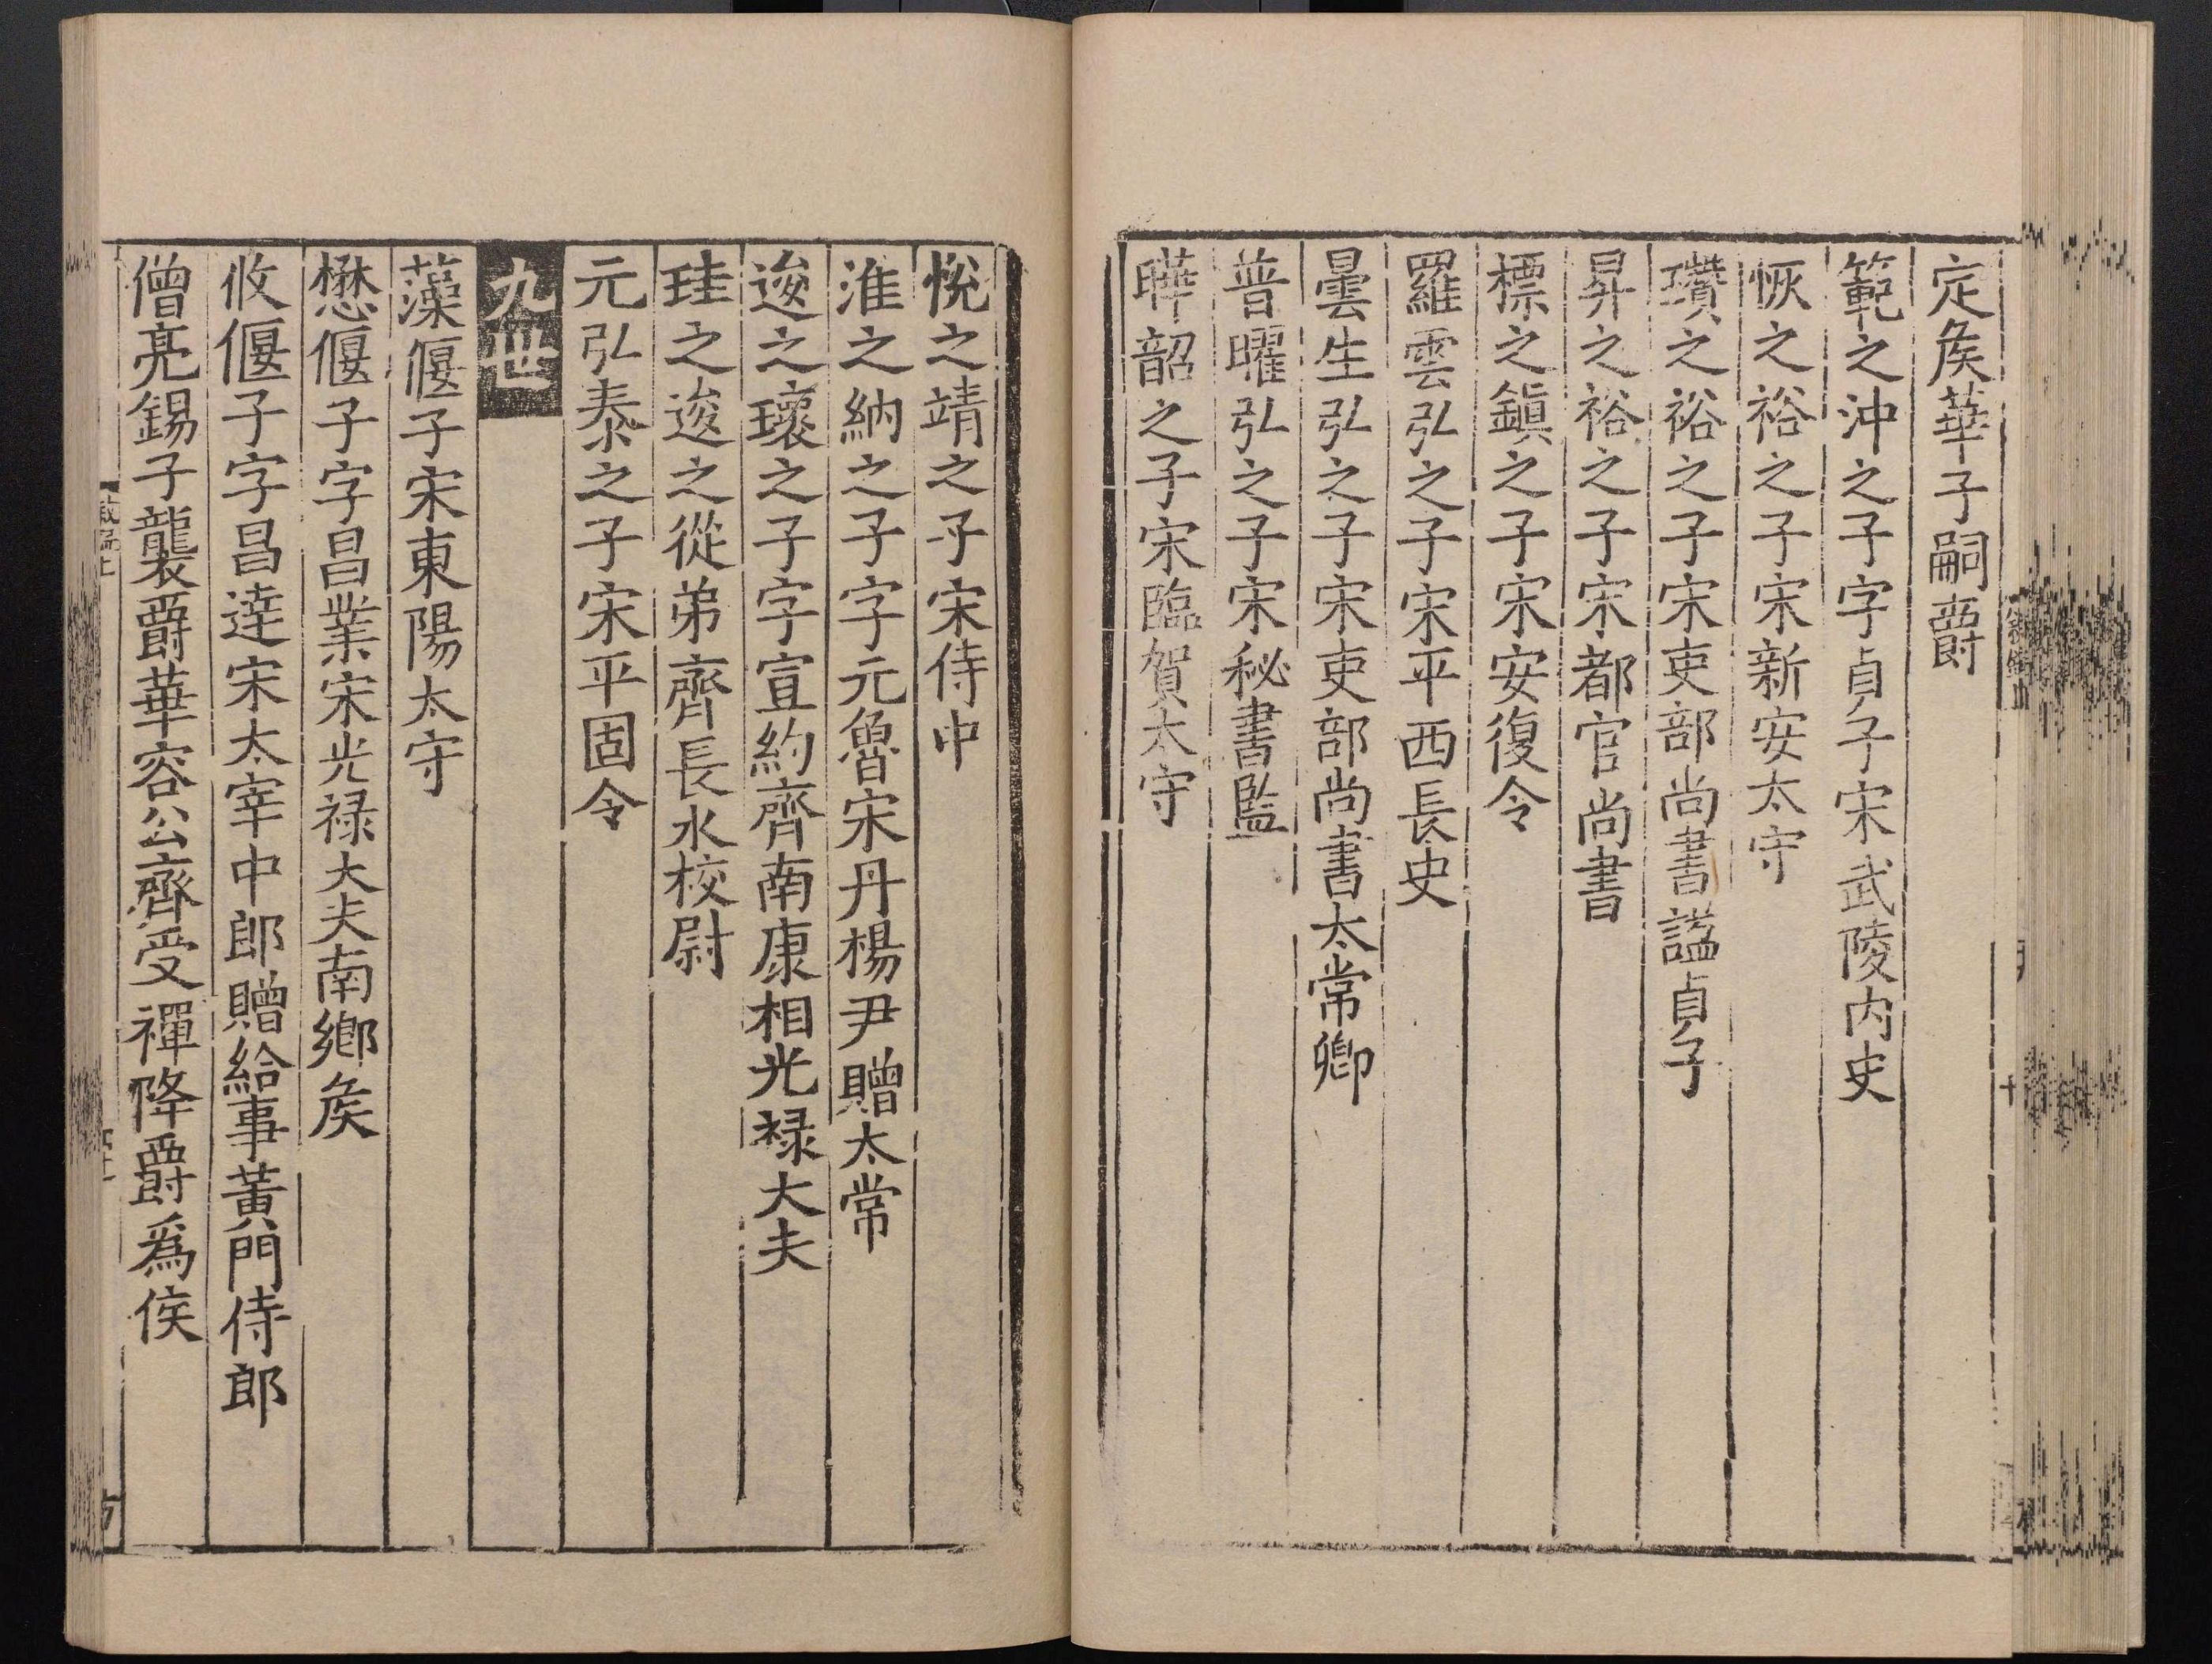 定矦華子嗣爵
範之沖之子字貞子宋武陵内史
恢之裕之子宋新安太守
瓚之裕之子宋吏部尚書謚貞子
昇之裕之子宋都官尚書
標之鎭之子宋安復令
羅雲弘之子宋平西長史
曇生弘之子宋吏部尚書太常卿
普曜弘之子宋秘書監
曄韶之子宋臨賀太守
悅之靖之子宋侍中
淮之納之子字元魯宋丹楊尹贈太常
逡之瓌之子字宣約齊南康相光禄大夫
珪之逡之從弟齊長水校尉
元弘泰之子宋平固令
九世
藻偃子宋東陽太守
懋偃子字昌業宋光禄大夫南鄉矦
攸偃子字昌達宋太宰中郎贈給事黃門侍郎
僧亮錫子襲爵華容公齊受禪降爵爲侯